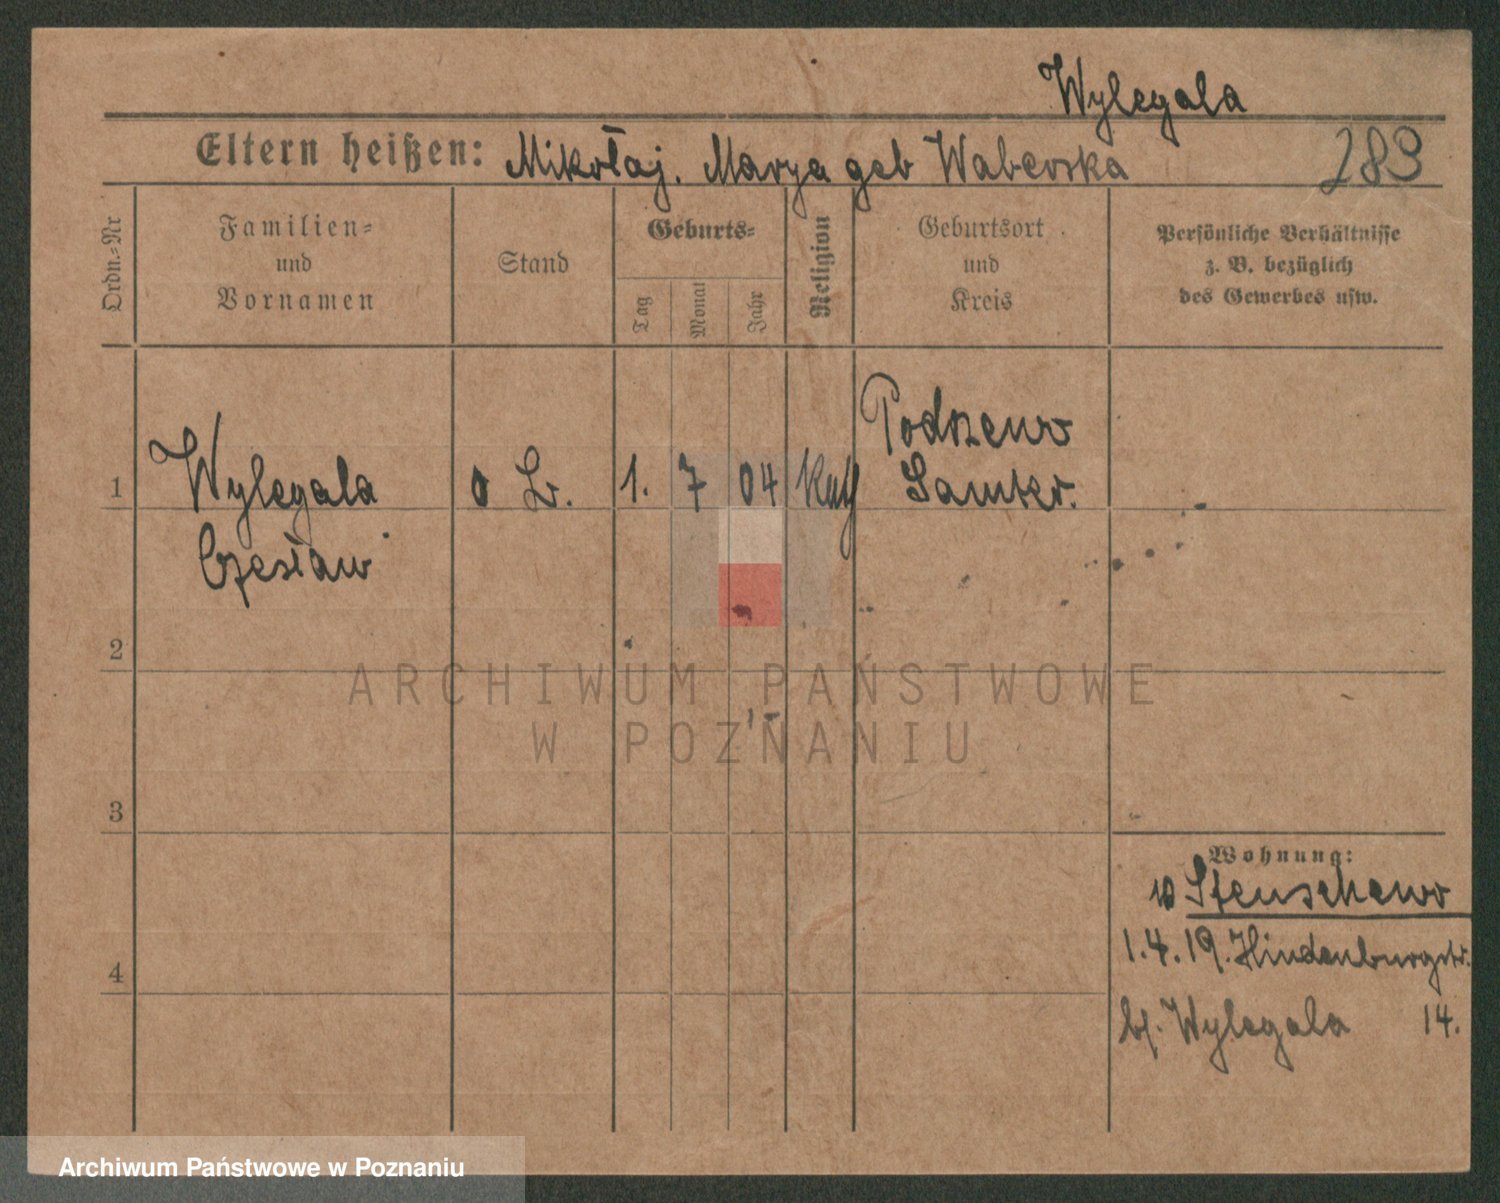 Wylegala
Eltern heißen: Mikołaj. Marya geb Waberska
283
Ordn.-Nr
Familien- und Vornamen
Stand
Geburts-
Tag
Monat
Jahr
Religion
Geburtsort und Kreis
Persönliche Verhältnisse
z. B. bezüglich
des Gewerbes usw.
Podrzewo
1 Wylegala 1. 7 04 Kath Samter.
Czesław
2
3
4
Wohnung:
Stenschewo
1.4.19. Hindenburgstr.
b/. Wylegala 14.
ARCHIWUM PAŃSTWOWE
W POZNANIU
Archiwum Państwowe w Poznaniu